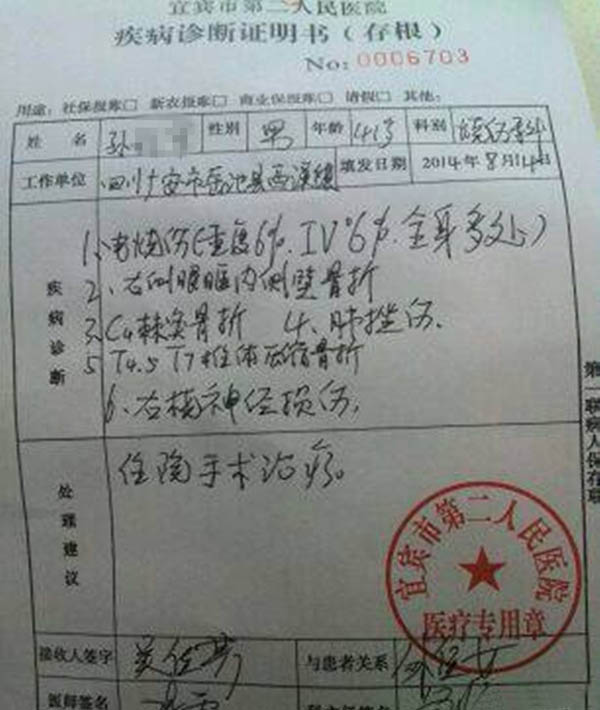 宜宾市第二人民医院
疾病诊断证明书（存根）
No: 0006703
用途：社保报账□ 新农报账□ 商业保报账□ 请假□ 其他：
姓 名 孙 性别 男 年龄 41岁 科别 烧伤手外
工作单位 四川广安市岳池县西溪镇 填发日期 2014年8月14日
疾病诊断
1、电烧伤(重度6%、IV°6%、全身多处)
2、右侧眼眶内侧壁骨折
3、C4棘突骨折 4、肺挫伤、
5、T4.5 T7椎体压缩骨折
6、右桡神经损伤。
处理建议
住院手术治疗。
宜宾市第二人民医院
医疗专用章
第一联病人保存联
接收人签字 与患者关系
医师签名